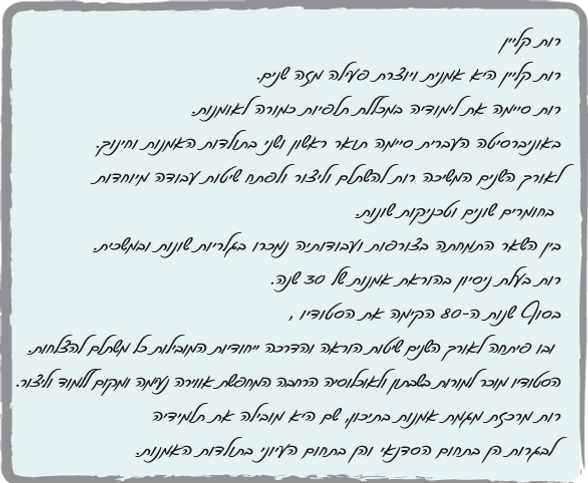 רות קליין
רות קליין היא אמנית ויוצרת פעילה מזה שנים.
רות סיימה את לימודיה במכללת תלפיות כמורה לאומנות.
באוניברסיטה העברית סיימה תואר ראשון ושני בתולדות האמנות וחינוך.
לאורך השנים המשיכה רות להשתלם וליצור ולפתח שיטות עבודה מיוחדות
בחומרים שונים וטכניקות שונות.
בין השאר התמחתה בצורפות ועבודותיה נמכרו בגלריות שונות ובמשכית.
רות בעלת ניסיון בהוראת אמנות של 30 שנה.
בסוף שנות ה-80 הקימה את הסטודיו ,
ובו פיתחה לאורך השנים שיטות הוראה והדרכה ייחודיות המובילות כל משתלם להצלחות.
הסטודיו מוכר למורות בשבתון ולאוכלוסיה הרחבה המחפשת אווירה נעימה ומקום ללמוד וליצור.
רות מרכזת מגמת אמנות בתיכון, שם היא מובילה את תלמידיה
לבגרות הן בתחום הסדנאי והן בתחום העיוני בתולדות האמנות.